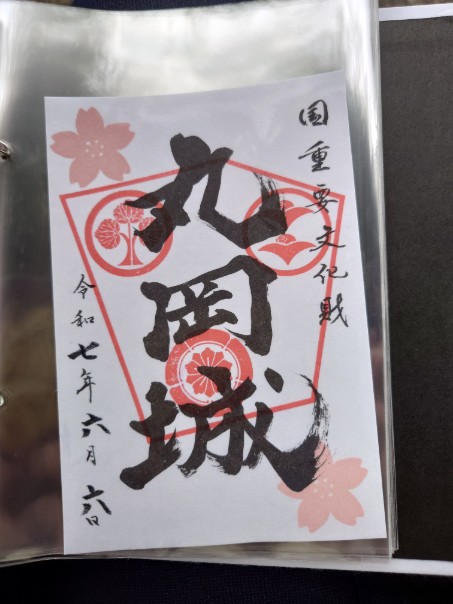 国重要文化財
丸岡城
令和七年六月六日